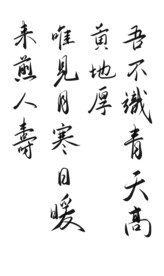 吾不識青天高
黄地厚
唯見月寒日暖
来煎人壽